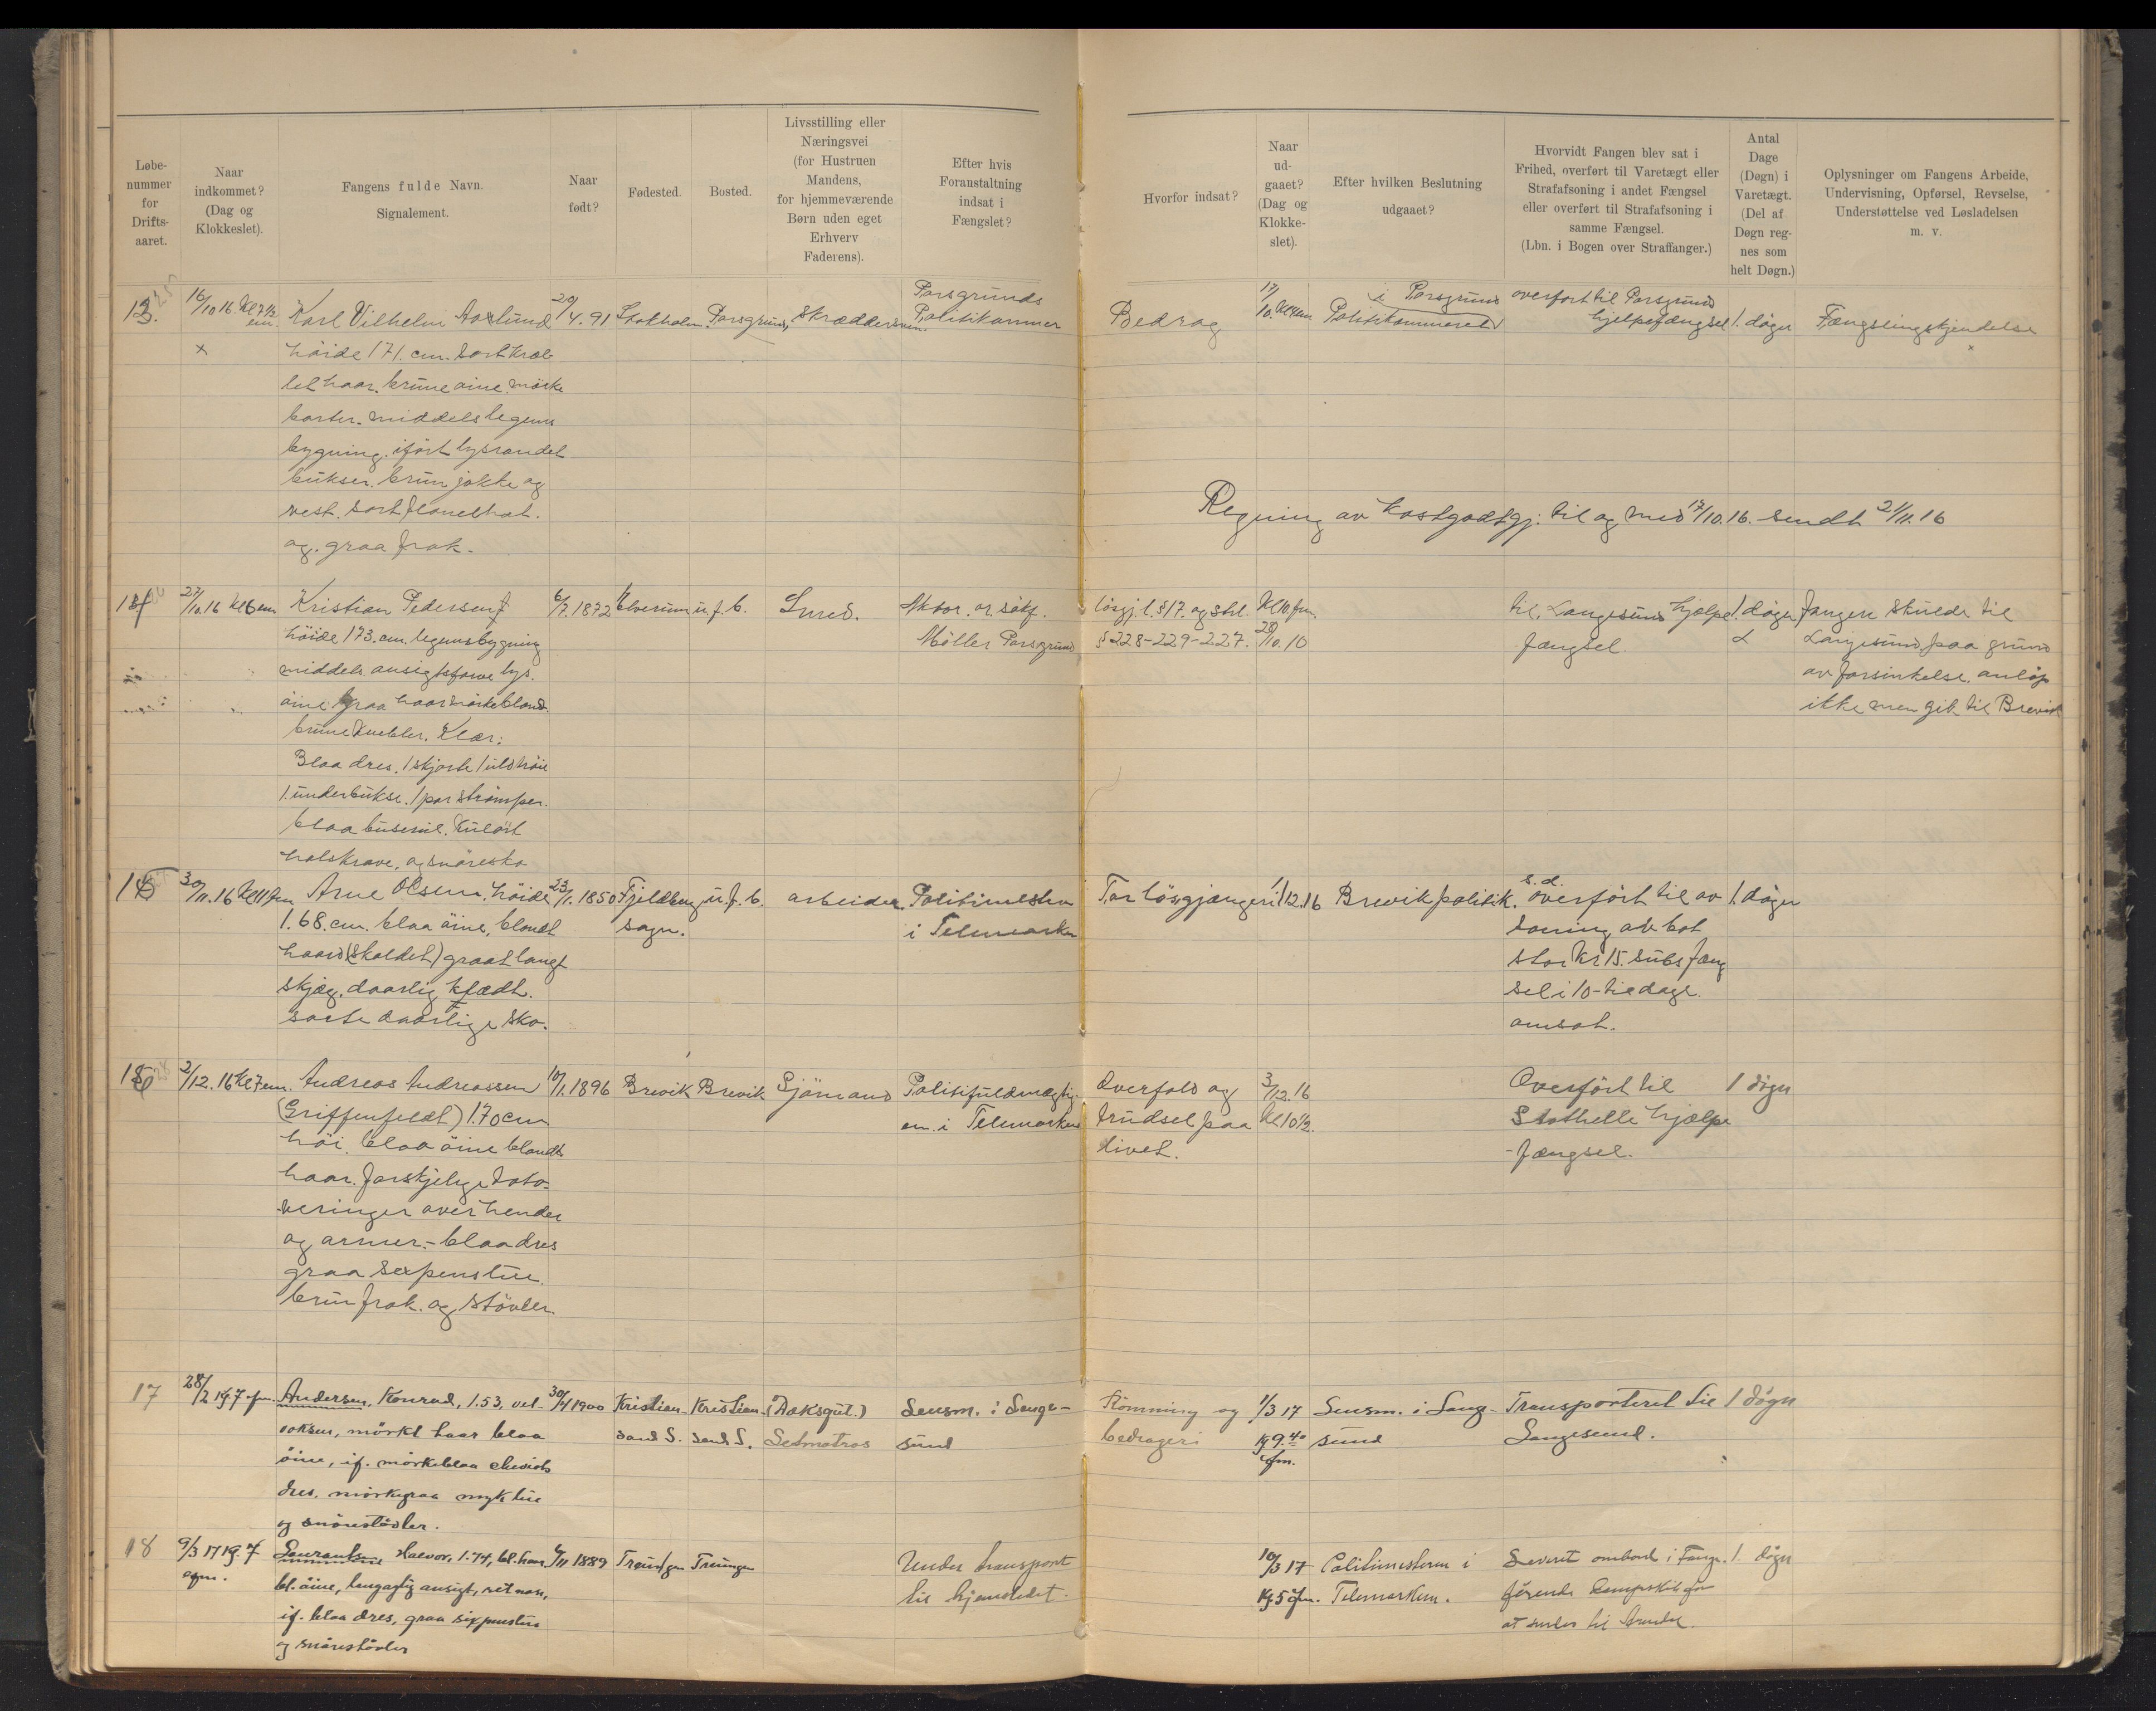 Løbe-
nummer
for
Drifts-
aaret.
Naar
indkommet?
(Dag og
Klokkeslet).
Fangens fulde Navn.
Signalement.
Naar
født?
Fødested.
Bosted.
Livsstilling eller
Næringsvei
(for Hustruen
Mandens,
for hjemmeværende
Børn uden eget
Erhverv
Faderens).
Efter hvis
Foranstaltning
indsat i
Fængslet?
Hvorfor indsat?
Naar
ud-
gaaet?
(Dag og
Klokke-
slet).
Efter hvilken Beslutning
udgaaet?
Hvorvidt Fangen blev sat i
Frihed, overført til Varetægt eller
Strafafsoning i andet Fængsel
eller overført til Strafafsoning i
samme Fængsel.
(Lbn. i Bogen over Straffanger.)
Antal
Dage
(Døgn) i
Varetægt.
(Del af
Døgn reg-
nes som
helt Døgn.)
Oplysninger om Fangens Arbeide,
Undervisning, Opførsel, Revselse,
Understøttelse ved Løsladelsen
m. v.
13.
16/10 16. Kl 7½
em.
x
Karl Vilhelm Axlund
höide 171. cm. sort kröl
let haar. brune öine. mörke
barter. middels legems
bygning. ifört lysrandet
bukser. brun jakke og
vest. sort flanelhat.
og. graa frak.
20/4. 91
Stokholm.
Porsgrund
Skræddersven.
Porsgrunds
Politikammer
Bedrag
17/
10. Kl 4 em
i Porsgrund
Politikammeret
overfort til Porsgrund
hjelpefængsel
1. dögn
Fængslingskjendelse
x
Regning av Kostgodtgj: til og med 17/10. 16. sendt 21/11. 16
14
27/10. 16 Kl 6 em
Kristian Pedersen
höide 173. cm. legemsbygning
middels ansigtsfarve lys.
öine graa haar mörkeblond.
brune Knebler. Klær:
Blaa dres. 1 skjorte 1 uldtröie
1. underbukse. 1 par strömper.
blaa buserul. Kulört
halskrave. og snöresko
6/7. 1872
Elverum
u. f. b.
Smed.
Aktor. or. sakf.
Möller Porsgrund
lösgj. l. § 17. og strl.
§ 228-229-227.
Kl 10 fm.
28/10. 16
til Langesund hjelpe
fængsel.
1. dögn
Fangen skulde til
Langesund paa grund
av forsinkelse. anlöp
ikke men gik til Brevik
15
30/11. 16 Kl 11 fm
Arne Olsen. höide
1.68. cm. blaa öine, blondt
haar (skaldet) graat langt
skjæg. daarlig klædt.
sorte daarlige sko.
23/1. 1850
Fjeldberg
sogn.
u. f. b.
arbeider
Politimesteren
i Telemarken
For lösgjængeri
1/12. 16
Brevik politik.
s. d.
overfört til av
soning av bot
stor kr 15. subs fæng
sel i 10-tie dage.
omsat.
1. dögn
16
2/12. 16 Kl 7 em.
Andreas Andreassen
(Griffenfeldt) 170 cm
höi. blaa öine blondt
haar. forskjelige tato-
veringer over hender
og armer.- blaa dres
graa sexpenslue.
brun frak. og stövler.
10/1. 1896
Brevik
Brevik
Sjömand
Politifuldmægtig-
en. i Telemarken
Overfald og
trudsel paa
livet.
3/12. 16
Kl 10½.
Overfört til
Stathelle hjelpe
-fængsel.
1 dögn
17
28/2 17 kl 7 fm.
Andersen, Konrad, 1.53, vel-
voksen, mörkt haar blaa
öine, if. mörkeblaa cheviots
dres. mörkegraa myk lue
og snörestövler.
30/4 1900
Kristian-
sand S.
Kristian-
sand S.
(Daksgut.)
Letmatros
Lensm. i Lange-
sund
Römning og
bedrageri
1/3 17
kl 9.40
fm.
Lensm. i Lang-
sund
Transporteret til
Langesund.
1 dögn
18
9/3 17 kl. 7
Halvor, 1.74, bl. haar
bl. öine, lengaglig ansigt, ret nese,
if. blaa dres, graa sixpenslue
og snörestövler
1889
Treungen
Treungen
Under transport
til hjemstedet.
10/3 17
kl 5 fm.
Politimesteren i
Telemarken.
Leveret ombord i Fange-
förende dampskib for
at sendes til Arendal.
1 dögn